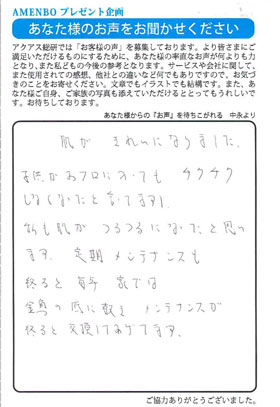 AMENBO プレゼント企画
あなた様のお声をお聞かせください
アクアス総研では「お客様の声」を募集しております。より皆さまにご
満足いただけるものにするために、あなた様の率直なお声が何よりも力
となり、また私どもの今後の参考となります。サービスや会社に関して、
また使用されての感想、他社との違いなど何でもありますので、お気づ
きのことをお寄せください。文章でもイラストでも結構です。また、あな
た様ご自身、ご家族の写真も添えていただけるととってもうれしいで
す。お待ちしております。
あなた様からの『お声』を待ちこがれる 中永より
肌が きれいになりました。
子供がおフロに入っても チクチク
しなくなったと言ってます!
私も肌が つるつるになったと思い
ます。定期メンテナンスも
終ると 我が家では
の底に敷き メンテナンスが
終ると 交換してあげてます。
ご協力ありがとうございました。